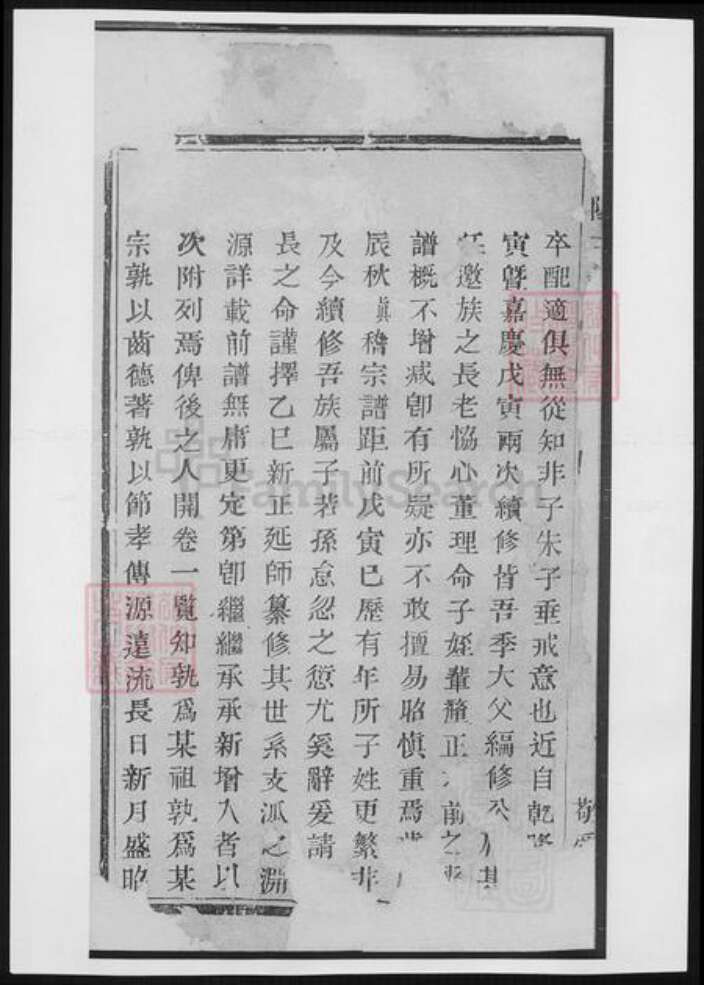 卒配適俱無從知非子朱子垂戒意也近自乾隆
寅曁嘉慶戊寅兩次續修皆吾季大父編修公 其
任邀族之長老恊心董理命子姪輩釐正 前之
譜槪不增减卽有所疑亦不敢擅易昭慎重焉
辰秋眞稽宗譜距前戊寅已歷有年所子姓更繁非
及今續修吾族屬子若孫怠忽之愆尤奚辭爰請
長之命謹擇乙巳新正延師纂修其世系支派之淵
源詳載前譜無庸更定第卽繼繼承承新增入者以
次附列焉俾後之人開卷一覽知孰爲某祖孰爲某
宗孰以齒德著孰以節孝傳源遠流長日新月盛昭
FamilySearch